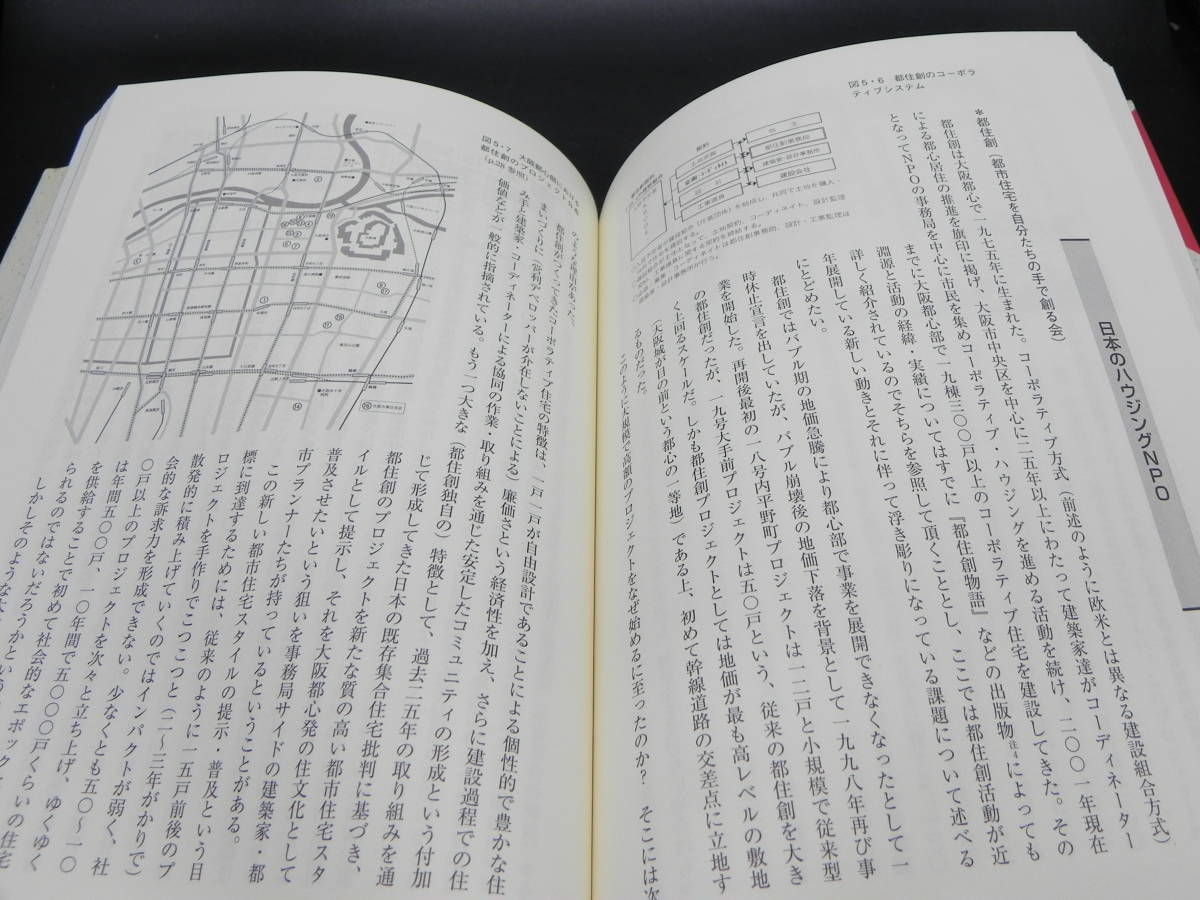 日本のハウジングNPO
*都住創(都市住宅を自分たちの手で創る会)
都住創は大阪都心で一九七五年に生まれた。コーポラティブ方式(前述のように欧米とは異なる建設組合方式)
による都心居住の推進を旗印に掲げ、大阪市中央区を中心に二五年以上にわたって建築家達がコーディネーター
となってNPOの事務局を中心に市民を集めコーポラティブ・ハウジングを進める活動を続け、二〇〇一年現在
までに大阪都心部で一九棟三〇〇戸以上のコーポラティブ住宅を建設してきた。その
淵源と活動の経緯・実績についてはすでに『都住創物語』などの出版物注4によっても
詳しく紹介されているのでそちらを参照して頂くこととし、ここでは都住創活動が近
年展開している新しい動きとそれに伴って浮き彫りになっている課題について述べる
にとどめたい。
都住創ではバブル期の地価急騰により都心部で事業を展開できなくなったとして一
時休止宣言を出していたが、バブル崩壊後の地価下落を背景として一九九八年再び事
業を開始した。再開後最初の一八号内平野町プロジェクトは一二戸と小規模で従来型
の都住創だったが、一九号大手前プロジェクトは五〇戸という、従来の都住創を大き
く上回るスケールだ。しかも都住創プロジェクトとしては地価が最も高レベルの敷地
(大阪城が目の前という都心の一等地)である上、初めて幹線道路の交差点に立地す
るものだった。
このように大規模で高額のプロジェクトをなぜ始めるに至ったのか? そこには次
図5・6 都住創のコーポラ
ティブシステム
契約
都住創事務局
建築家・設計事務所
建設会社
工事請負
のような理由があった。
都住創がつくってきたコーポラティブ住宅の特徴は、一戸一戸が自由設計であることによる個性的で豊かな住
まいづくりに(営利デベロッパーが介在しないことによる)廉価さという経済性を加え、さらに建設過程での住
み手と建築家・コーディネーターによる協同の作業・取り組みを通じた安定したコミュニティの形成という付加
価値などが一般的に指摘されている。もう一つ大きな(都住創独自の)特徴として、過去二五年の取り組みを通
じて形成してきた日本の既存集合住宅批判に基づき、
都住創のプロジェクトを新たな質の高い都市住宅スタ
イルとして提示し、それを大阪都心発の住文化として
普及させたいという狙いを事務局サイドの建築家・都
市プランナーたちが持っているということがある。
この新しい都市住宅スタイルの提示・普及という目
標に到達するためには、従来のように一五戸前後のプ
ロジェクトを手作りでこつこつと(二〜三年がかりで)
散発的に積み上げていくのではインパクトが弱く、社
会的な訴求力を形成できない。少なくとも五〇〜一〇
〇戸以上のプロジェクトを次々と立ち上げ、ゆくゆく
は年間五〇〇戸、一〇年間で五〇〇〇戸くらいの住宅
を供給することで初めて社会的なエポック
られるのではないだろうかという
しかしそのような
図5・7 大阪都心部における
都住創のプロジェクト分布
(p.28参照)